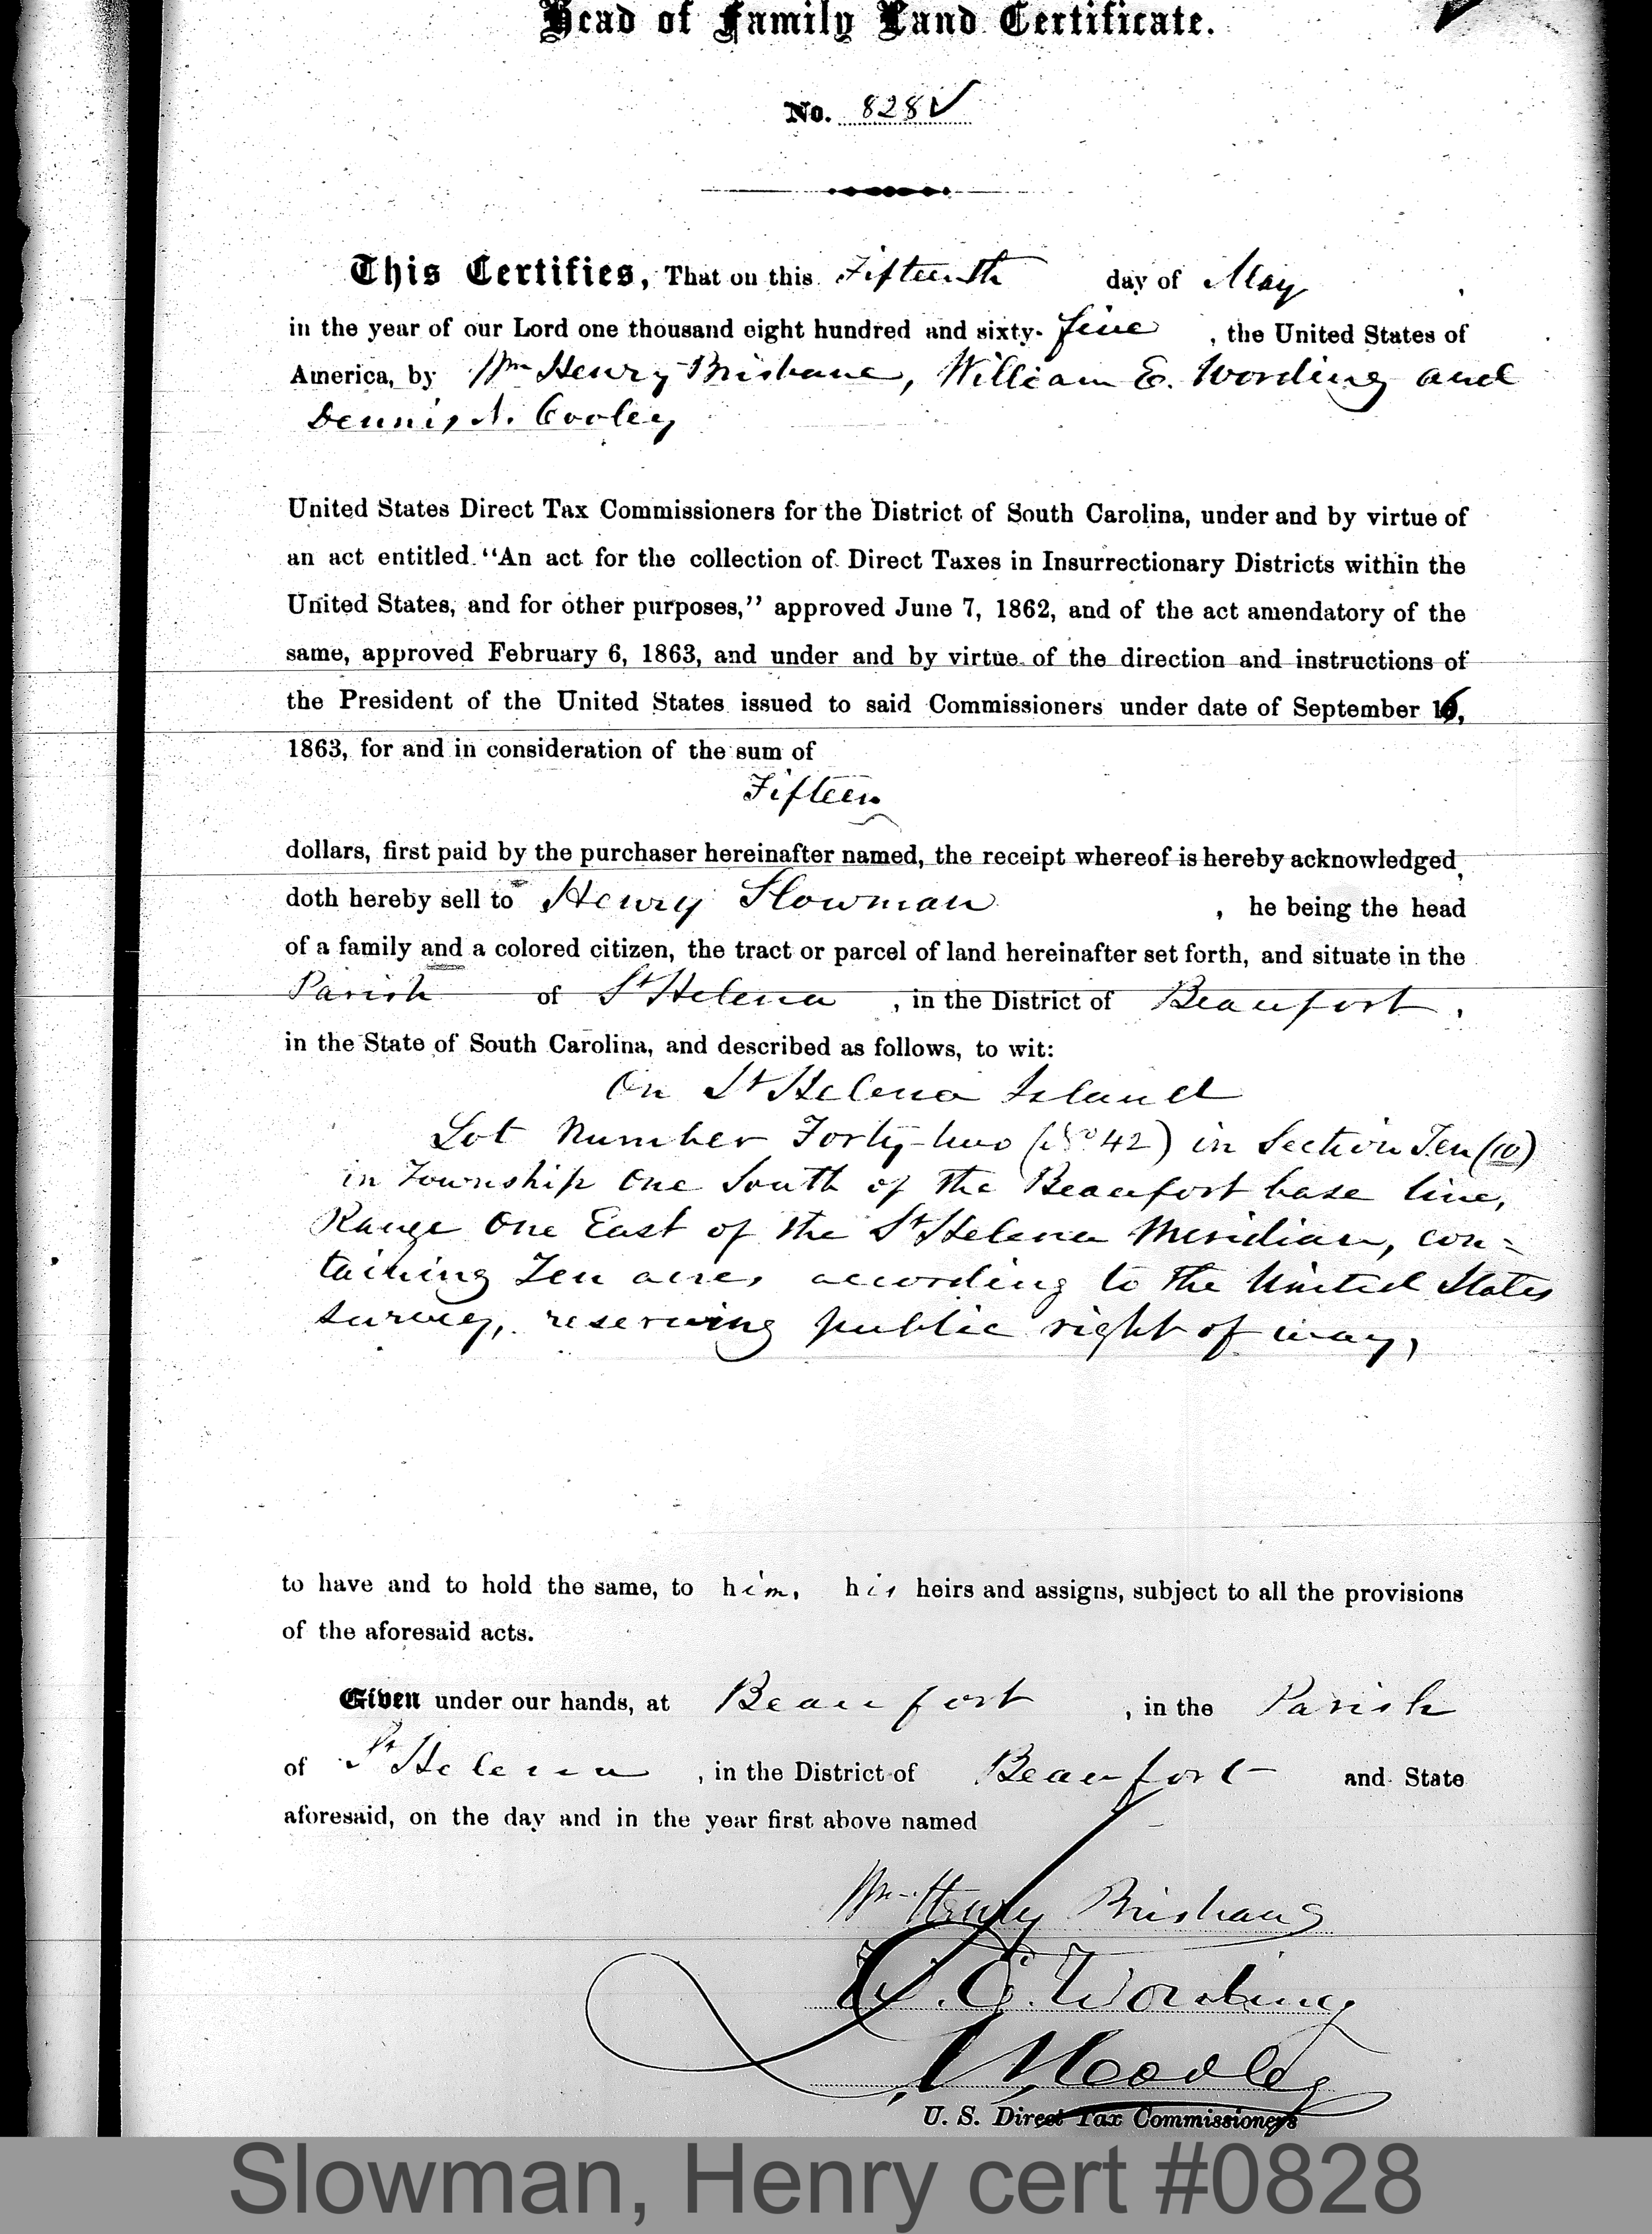 Head of Family Land Certificate.
No. 828 ✓
This Certifies, That on this Fifteenth day of May
in the year of our Lord one thousand eight hundred and sixty-five, the United States of
America, by Wm Henry Brisbane, William E. Wording and
Dennis N. Cooley
United States Direct Tax Commissioners for the District of South Carolina, under and by virtue of
an act entitled "An act for the collection of Direct Taxes in Insurrectionary Districts within the
United States, and for other purposes," approved June 7, 1862, and of the act amendatory of the
same, approved February 6, 1863, and under and by virtue of the direction and instructions of
the President of the United States issued to said Commissioners under date of September 16,
1863, for and in consideration of the sum of
Fifteen
dollars, first paid by the purchaser hereinafter named, the receipt whereof is hereby acknowledged,
doth hereby sell to Henry Slowman, he being the head
of a family and a colored citizen, the tract or parcel of land hereinafter set forth, and situate in the
Parish of St Helena, in the District of Beaufort,
in the State of South Carolina, and described as follows, to wit:
On St Helena Island
Lot Number Forty-two (No 42) in Section Ten (10)
in Township One South of the Beaufort base line,
Range One East of the St Helena Meridian, con=
taining Ten acres according to the United States
survey, reserving public right of way,
to have and to hold the same, to him, his heirs and assigns, subject to all the provisions
of the aforesaid acts.
Given under our hands, at Beaufort, in the Parish
of St Helena, in the District of Beaufort and State
aforesaid, on the day and in the year first above named
Wm Henry Brisbane
W. E. Wording
D N Cooley
U. S. Direct Tax Commissioners
Slowman, Henry cert #0828